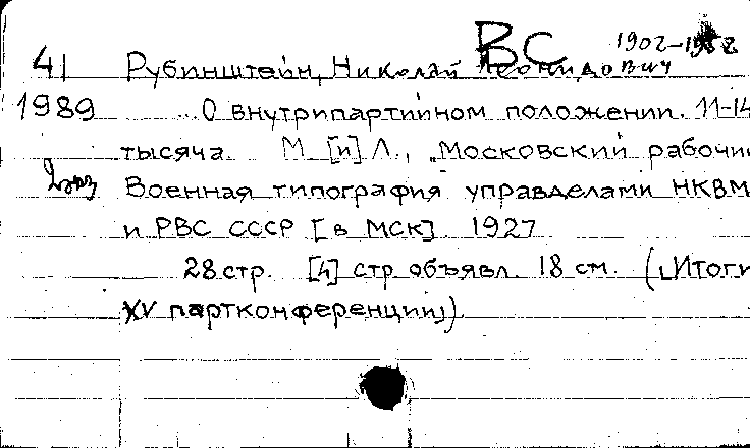 ВС
41 Рубинштейн, Николай Леонидович 1902-
1989 ... О внутрипартийном положении. 11-14
тысяча. М. [и] Л., "Московский рабочи
Военная типография управделами НКВМ
и РВС СССР [в МСК] 1927
28 стр. [4] стр. объявл. 18 см. ("Итоги
XV партконференции").